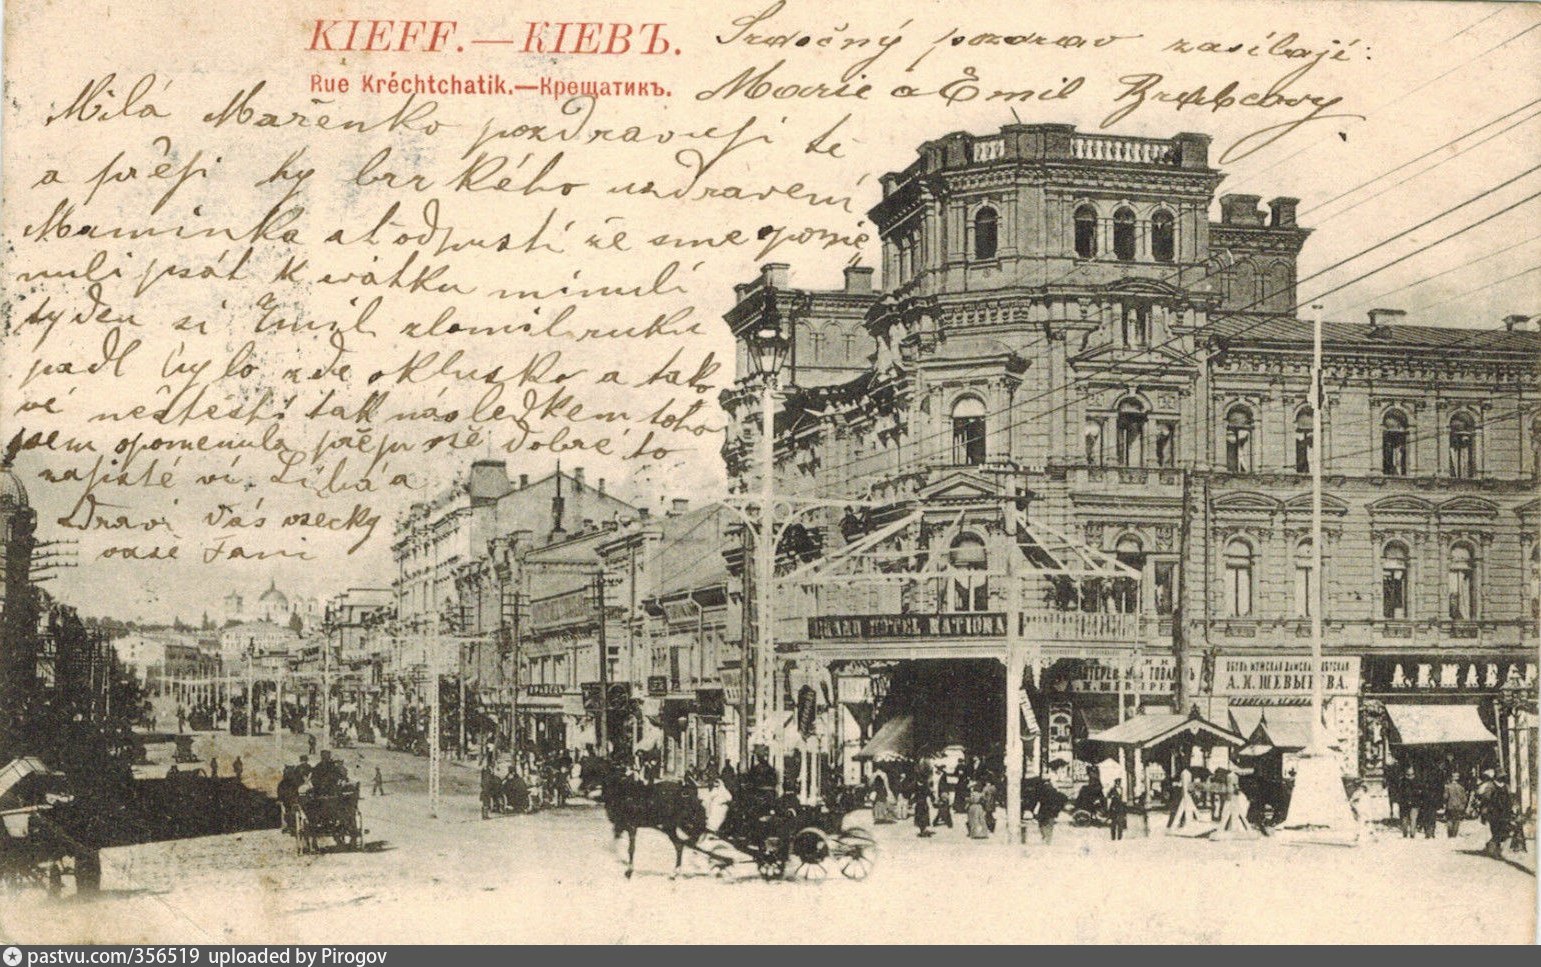 KIEFF.—КІЕВЪ.
Rue Kréchtchatik.—Крещатикъ.
Srdečný pozdrav zasílají:
Marie a Emil
Milá Mařenko pozdravuji tě
a přeji ky brzkého uzdravení,
Maminka ať odpustí že sme opomě
nuli psát k svátku minulí
tyden si Emil zlomil ruku
padl bylo zde oklusko a tako
vé neštěstí tak následkem toho
jsem opomenula přeju vše dobré to
zajisté ví. Líbá a
zdraví Vás vsecky
vaše Fani
GRAND HOTEL NATIONAL
А.И.ШЕВЫЕВА.
pastvu.com/356519 uploaded by Pirogov